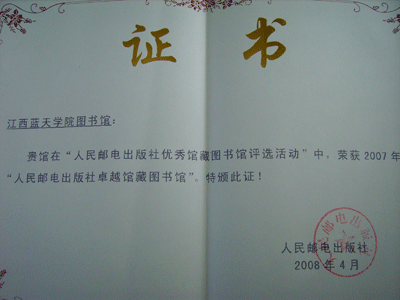 证书
江西蓝天学院图书馆：
贵馆在“人民邮电出版社优秀馆藏图书馆评选活动”中，荣获2007年
“人民邮电出版社卓越馆藏图书馆”。特颁此证！
人民邮电出版社
2008年4月